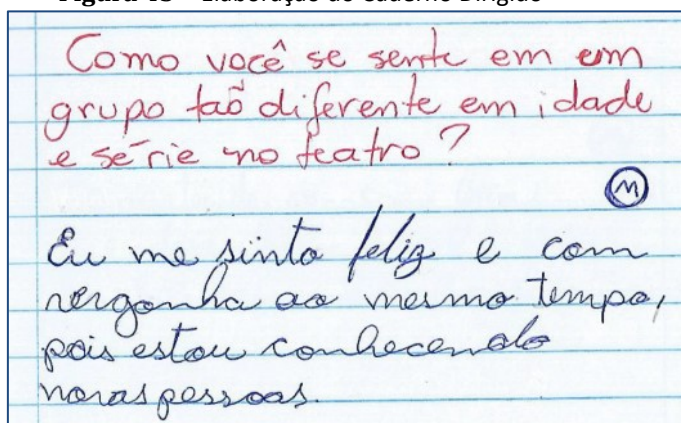 Como você se sente em um
grupo taõ diferente em idade
e série no teatro?
M
Eu me sinto feliz e com
vergonha ao mesmo tempo,
pois estou conhecendo
novas pessoas.